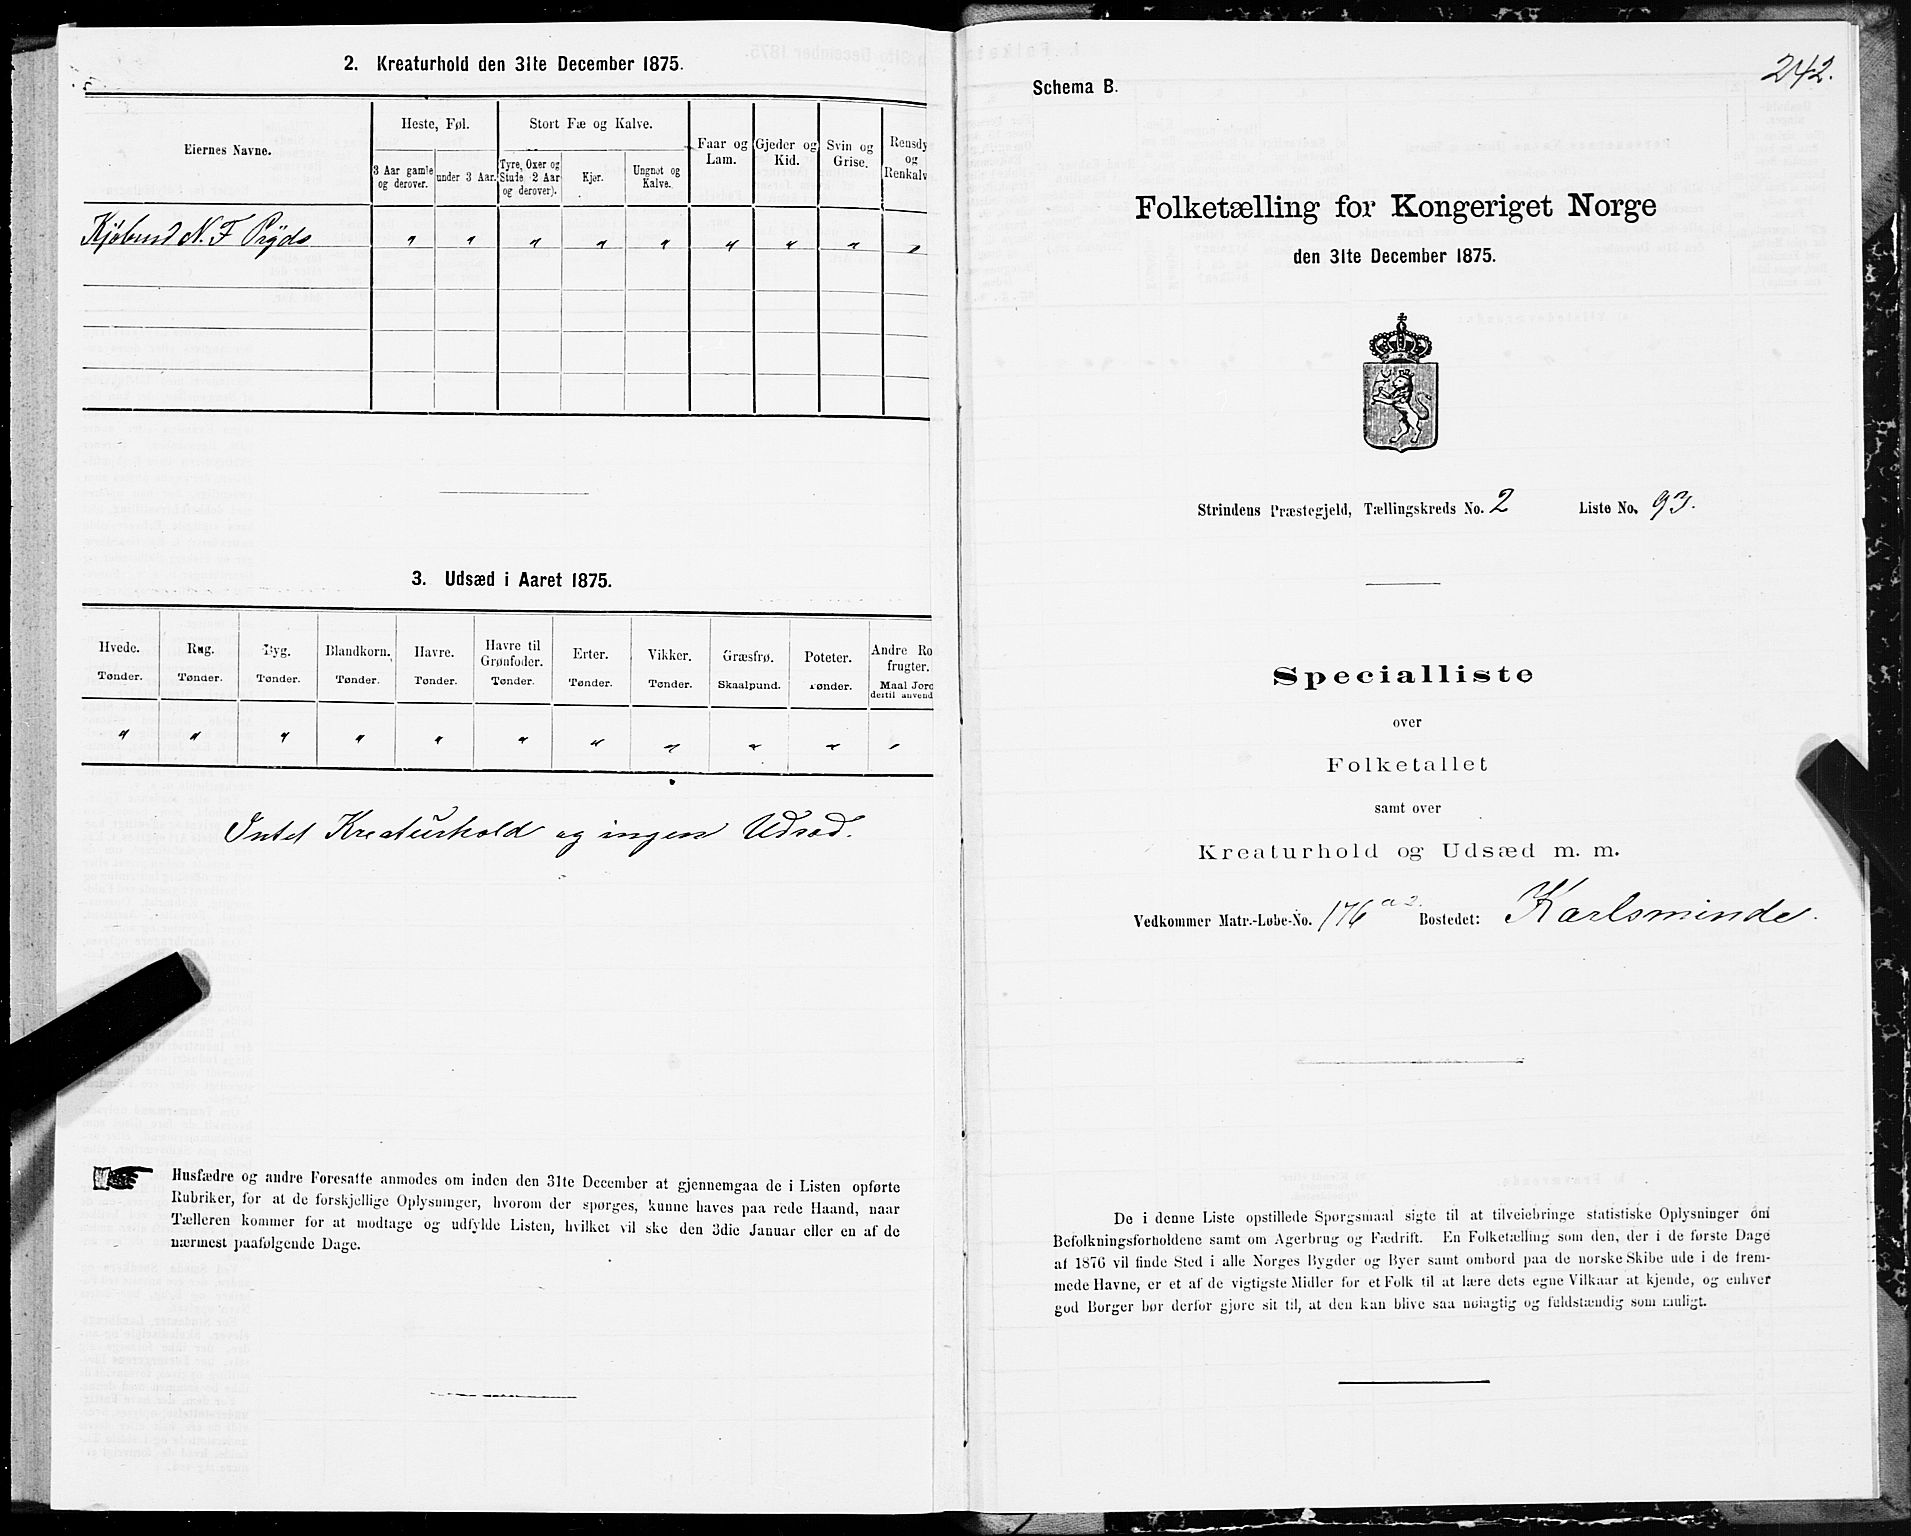 2. Kreaturhold den 31te December 1875.
Eiernes Navne.
Heste, Føl.
Stort Fæ og Kalve.
Faar og Lam.
Gjeder og Kid.
Svin og Grise.
Rensdy
og
Renkalv
3 Aar gamle og derover.
under 3 Aar.
Tyre, Oxer og Stude 2 Aar og derover).
Kjør.
Ungnøt og Kalve.
Kjøbmd N. F. Prÿds " " " " " " " " "
3. Udsæd i Aaret 1875.
Hvede. Rug. Byg. Blandkorn. Havre. Havre til Grønfoder. Erter. Vikker. Græsfrø. Poteter. Andre Ro frugter.
Tønder. Tønder. Tønder. Tønder. Tønder. Tønder. Tønder. Tønder. Skaalpund. Tønder. Maal Jord dertil anvend
" " " " " " " " " " "
Intet Kreaturhold og ingen Udsæd.
Husfædre og andre Foresatte anmodes om inden den 31te December at gjennemgaa de i Listen opførte
Rubriker, for at de forskjellige Oplysninger, hvorom der spørges, kunne haves paa rede Haand, naar
Tælleren kommer for at modtage og udfylde Listen, hvilket vil ske den 3die Januar eller en af de
nærmest paafølgende Dage.
242.
Schema B.
Folketælling for Kongeriget Norge
den 31te December 1875.
Strindens Præstegjeld, Tællingskreds No. 2 Liste No. 93.
Specialliste
over
Folketallet
samt over
Kreaturhold og Udsæd m. m.
Vedkommer Matr.-Løbe-No. 176 a 2. Bostedet: Karlsminde.
De i denne Liste opstillede Spørgsmaal sigte til at tilveiebringe statistiske Oplysninger om
Befolkningsforholdene samt om Agerbrug og Fædrift. En Folketælling som den, der i de første Dage
af 1876 vil finde Sted i alle Norges Bygder og Byer samt ombord paa de norske Skibe ude i de frem-
mede Havne, er et af de vigtigste Midler for et Folk til at lære dets egne Vilkaar at kjende, og enhver
god Borger bør derfor gjøre sit til, at den kan blive saa nøiagtig og fuldstændig som muligt.